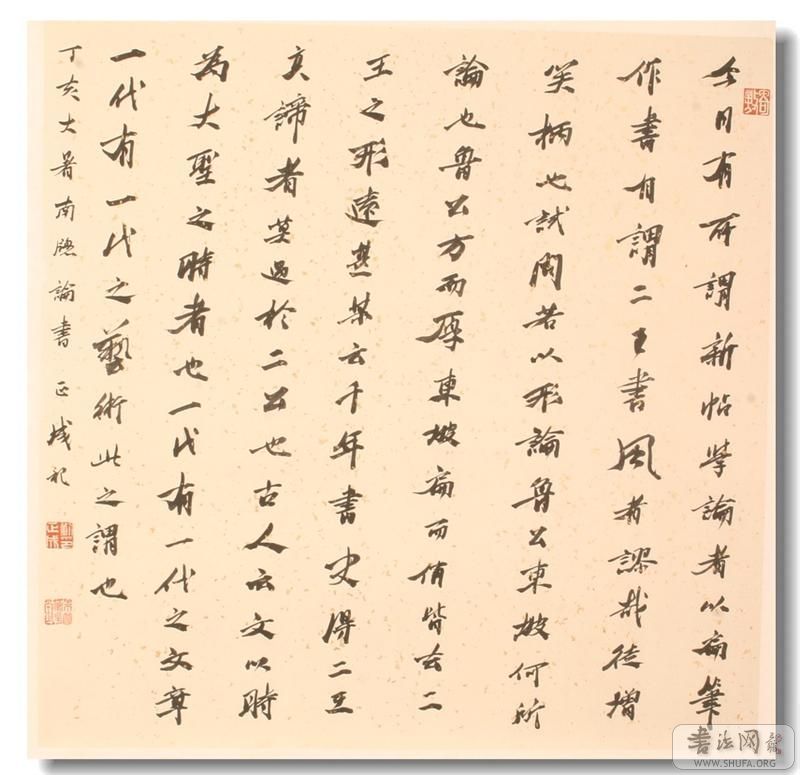 今日有所謂新帖學論者以扁筆
作書自謂二王書風者謬哉徒增
笑柄也試問若以形論魯公東坡何所
論也魯公方而厚東坡扁而俏皆去二
王之形遠甚某云千年書史得二王
真諦者莫過於二公也古人云文以時
為大聖之時者也一代有一代之文章
一代有一代之藝術此之謂也
丁亥大暑南窗論書 正成
書法网
WWW.SHUFA.ORG